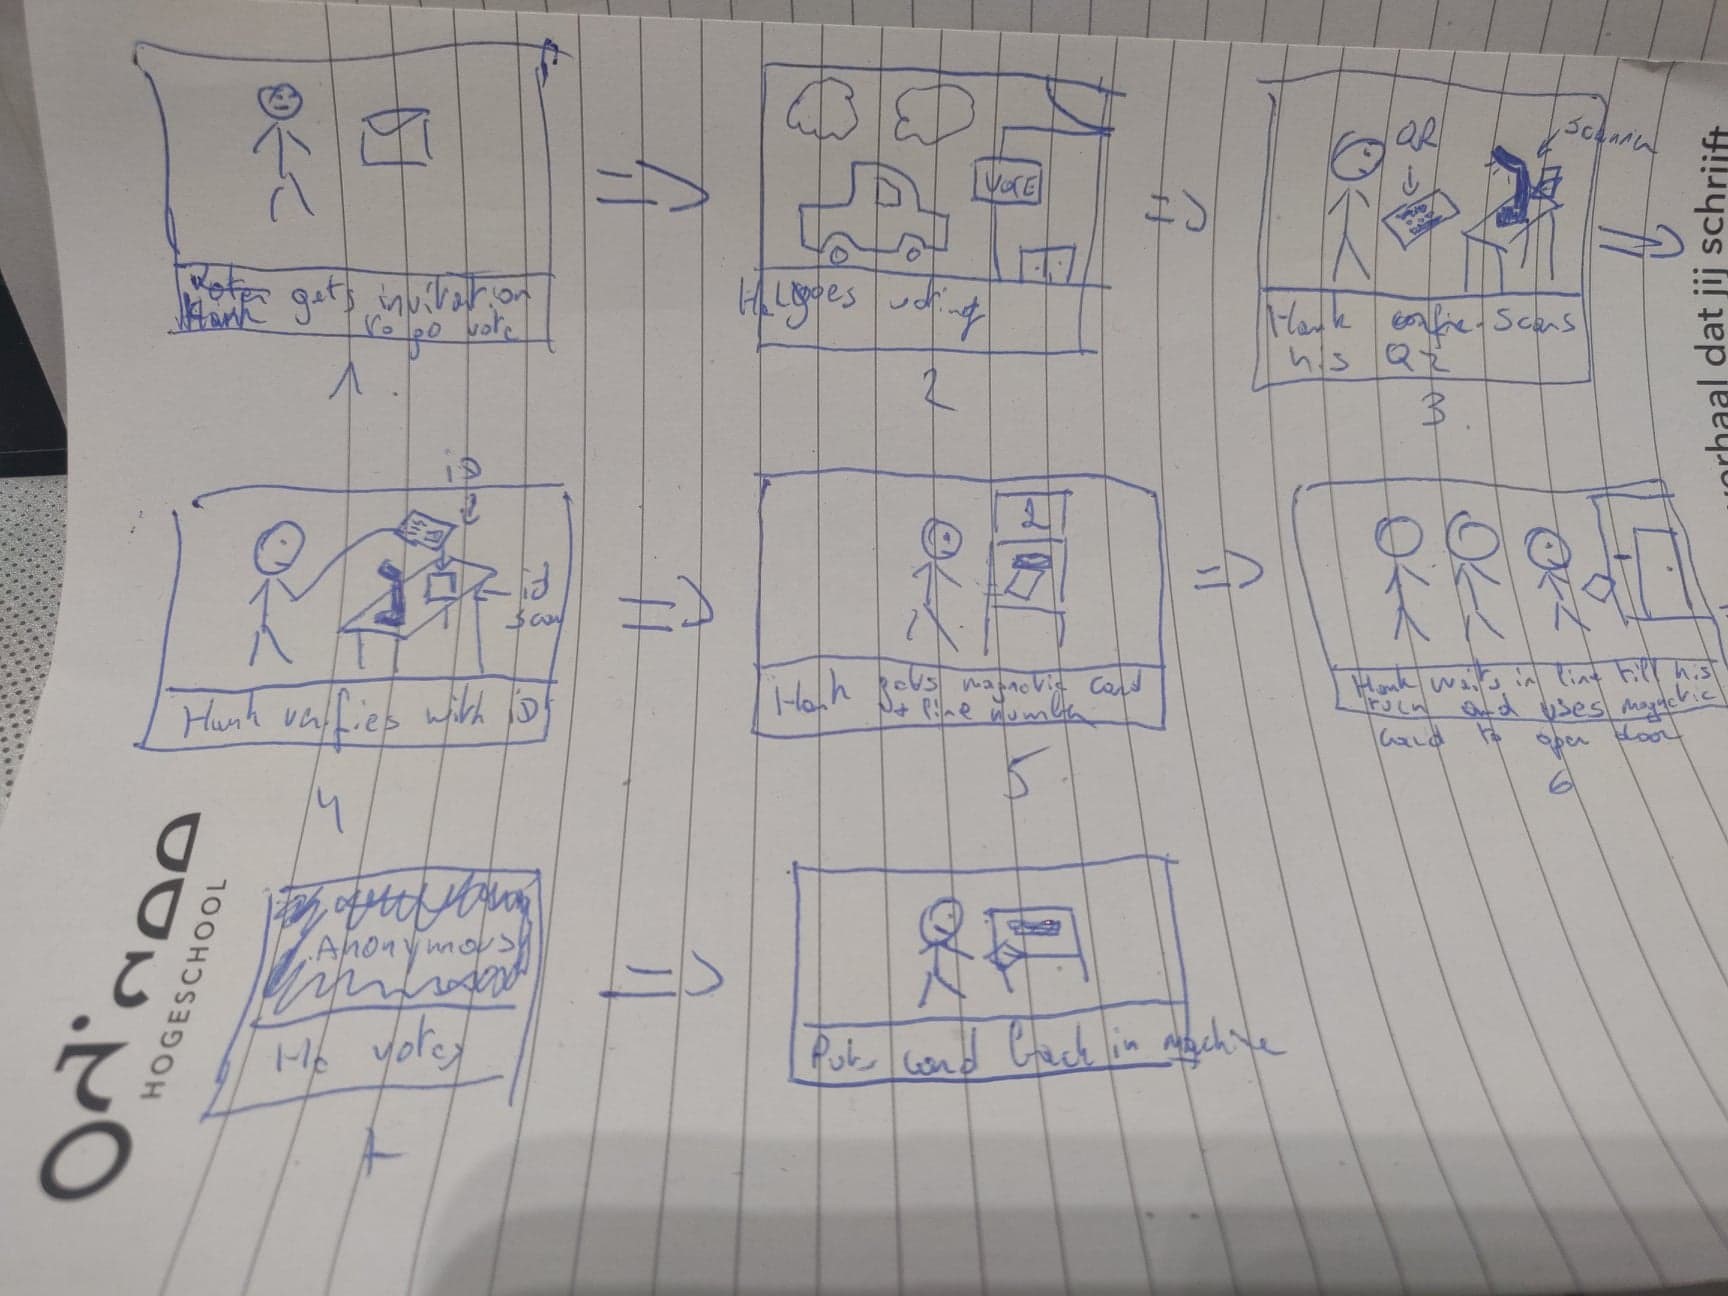 Voter
Hank gets invitation
to go vote
1.
VOTE
He goes voting
2
QR
scanner
Hank scans
his QR
3.
iD
id
scan
Hank verifies with iD
4
2
Hank gets magnetic card
+ line number
5
Hank waits in line till his
turn and uses magnetic
card to open door
6
Anonymous
He votes
7
Puts card back in machine
odisee
HOGESCHOOL
rhaal dat jij schrijft